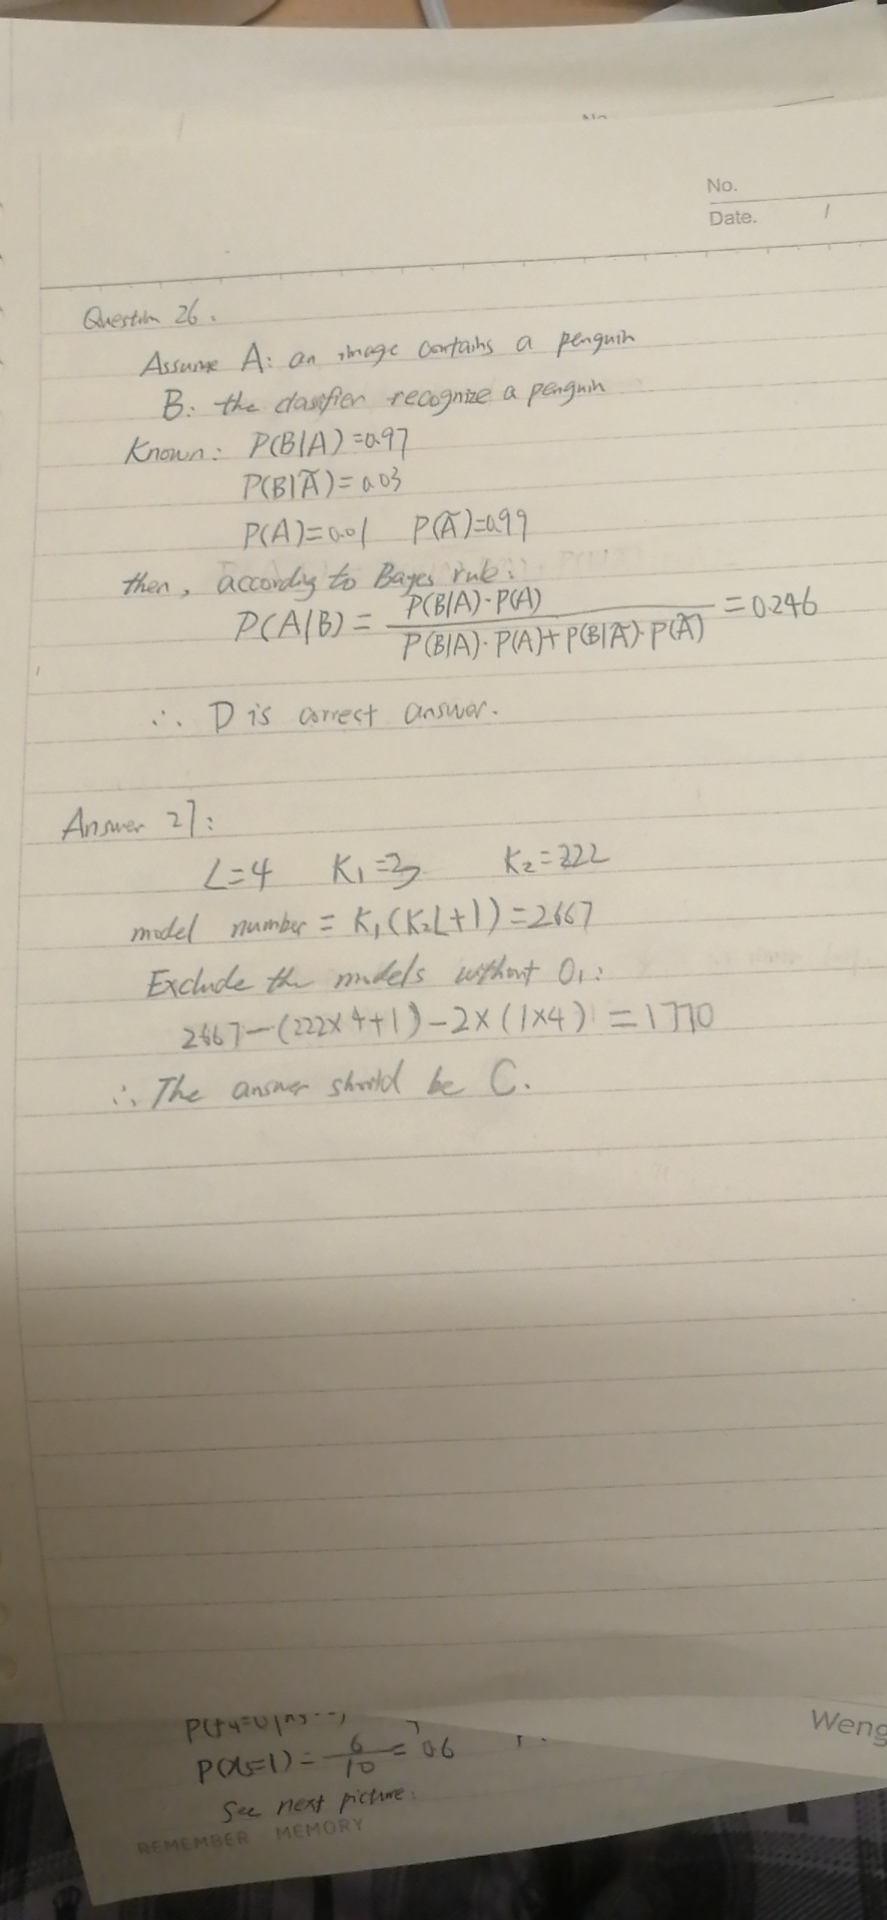 No.
Date. 1
Question 26.
Assume A: an image contains a penguin
B: the classifier recognize a penguin
Known: P(B|A)=0.97
P(B|Ā)=0.03
P(A)=0.01 P(Ā)=0.99
then, according to Bayes rule:
P(A|B) = P(B|A)·P(A) / P(B|A)·P(A)+P(B|Ā)·P(Ā) = 0.246
∴ D is correct answer.
Answer 27:
L=4 K₁=3 K₂=222
model number = K₁(K₂L+1)=2667
Exclude the models without O₁:
2667-(222×4+1)-2×(1×4) =1770
∴ The answer should be C.
Weng
P(x₅=1) = 6/10 = 0.6
See next picture:
REMEMBER MEMORY